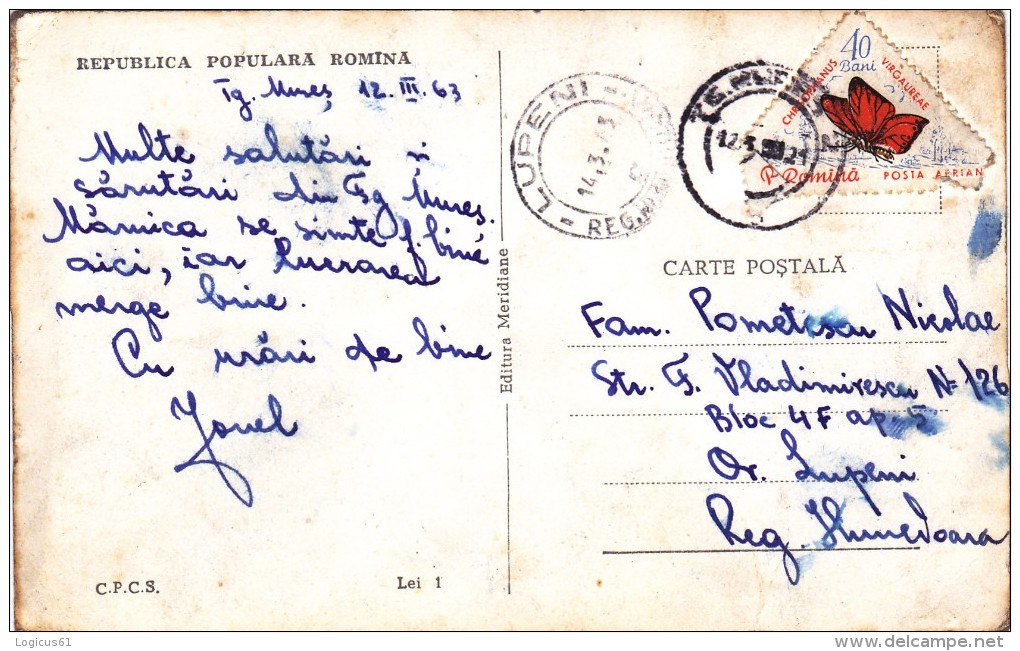 REPUBLICA POPULARĂ ROMÎNĂ
Tg. Mureș 12.III.63
Multe salutări și
sărutări din Tg Mureș.
Mămica se simte f. bine
aici, iar lucrarea
merge bine.
Cu urări de bine
Jonel
C.P.C.S.
Lei 1
Editura Meridiane
LUPENI
14.3.63
REG.
12.3.
40
Bani
CHRYSOPHANUS
VIRGAUREAE
P. Romînă
POSTA AERIAN
CARTE POȘTALĂ
Fam. Pometescu Nicolae
Str. F. Vladimirescu No 126
Bloc 4F ap. 5
Or. Lupeni
Reg. Hunedoara
Logicus61
www.delcampe.net